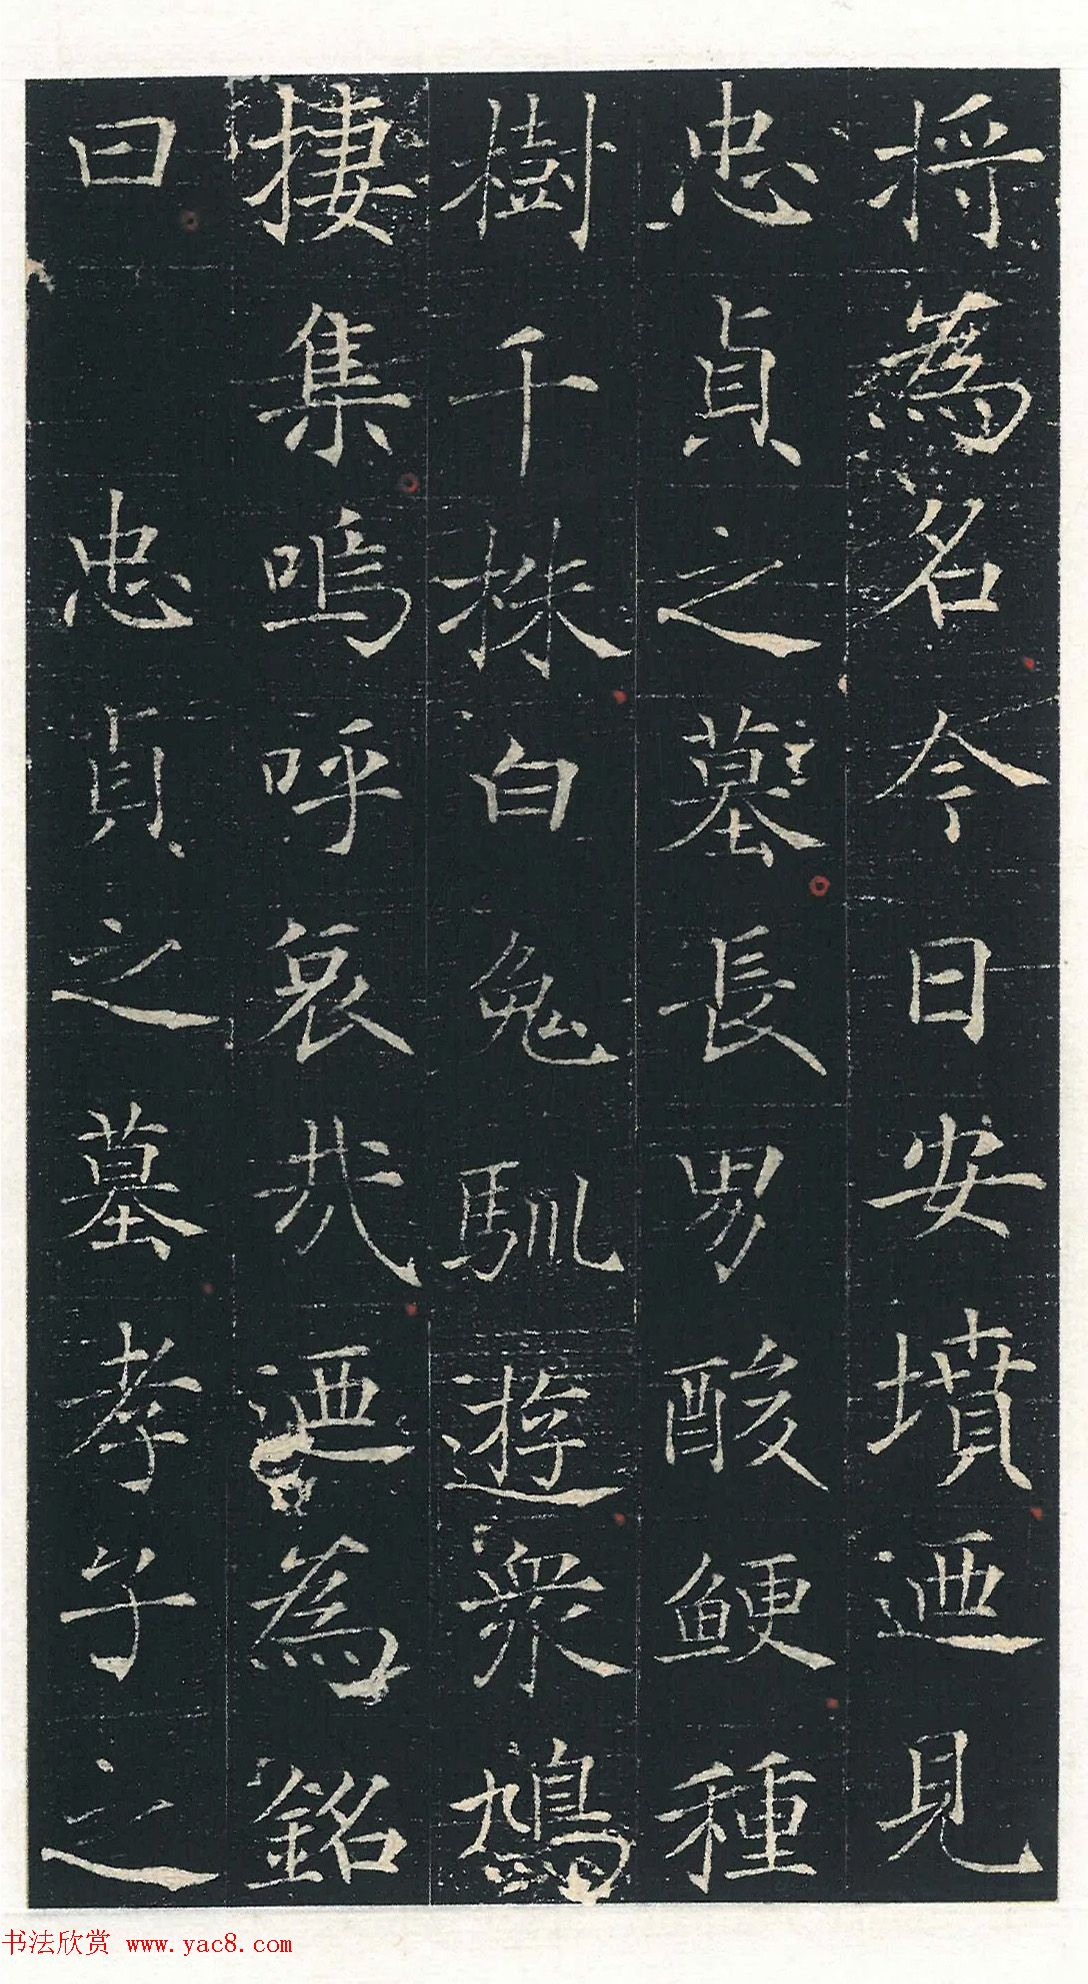 将為名今日安墳迺見
忠貞之墓長男酸鯁種
樹千株白兔馴遊衆鳩
捿集嗚呼哀哉迺為銘
曰 忠貞之墓孝子之
书法欣赏 www.yac8.com